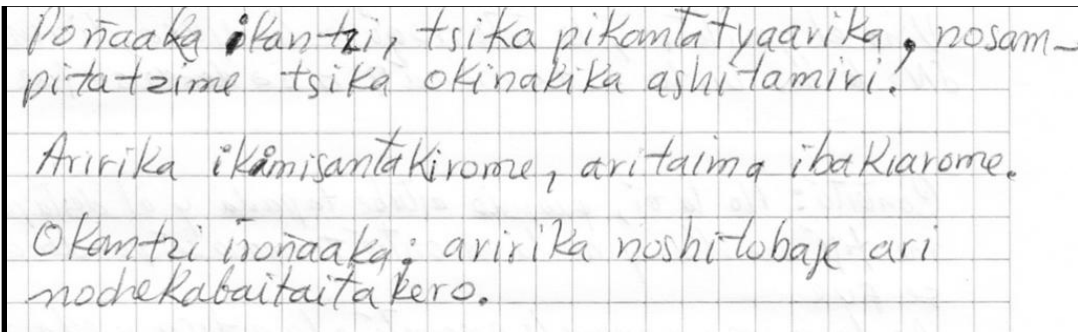 Poñaaka ikantzi, tsika pikantatyaarika, nosam-
pitatzime tsika okinakika ashitamiri!
Aririka ikimisantakirome, aritaima ibakiarome.
Okantzi iroñaaka: aririka noshitobaje ari
nochekabaitaitakero.